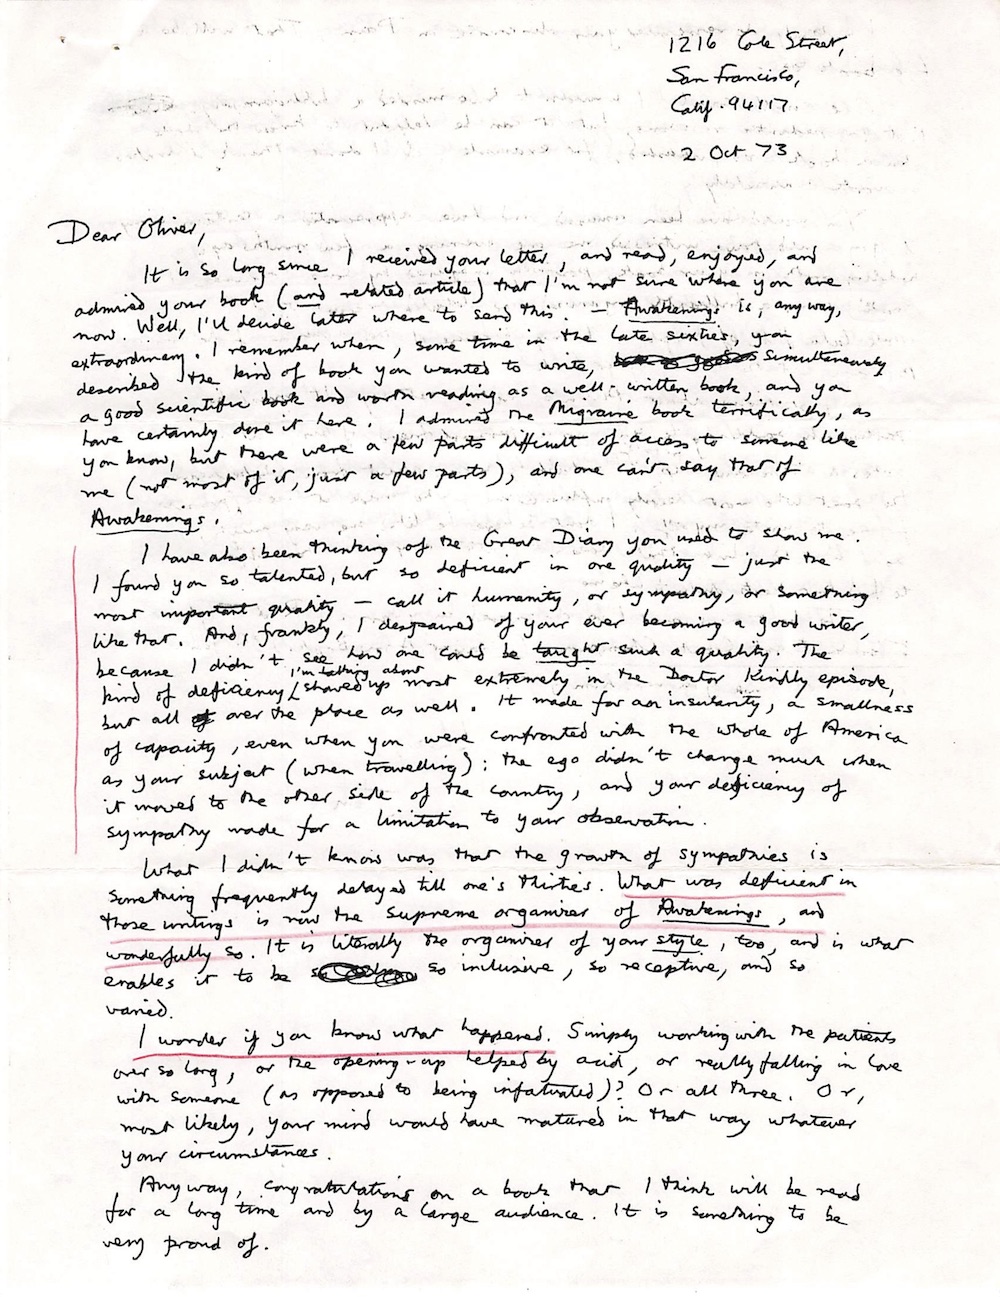 1216 Cole Street,
San Francisco,
Calif. 94117
2 Oct 73
Dear Oliver,
It is so long since I received your letter, and read, enjoyed, and
admired your book (and related article) that I'm not sure where you are
now. Well, I'll decide later where to send this. — Awakenings is, anyway,
extraordinary. I remember when, some time in the late sixties, you
described the kind of book you wanted to write, simultaneously
a good scientific book and worth reading as a well-written book, and you
have certainly done it here. I admired the Migraine book terrifically, as
you know, but there were a few parts difficult of access to someone like
me (not most of it, just a few parts), and one can't say that of
Awakenings.
I have also been thinking of the Great Diary you used to show me.
I found you so talented, but so deficient in one quality — just the
most important quality — call it humanity, or sympathy, or something
like that. And, frankly, I despaired of your ever becoming a good writer,
because I didn't see how one could be taught such a quality. The
kind of deficiency I'm talking about showed up most extremely in the Doctor Kindly episode,
but all over the place as well. It made for an insularity, a smallness
of capacity, even when you were confronted with the whole of America
as your subject (when travelling): the ego didn't change much when
it moved to the other side of the country, and your deficiency of
sympathy made for a limitation to your observation.
What I didn't know was that the growth of sympathies is
something frequently delayed till one's thirties. What was deficient in
those writings is now the supreme organizer of Awakenings, and
wonderfully so. It is literally the organizer of your style, too, and is what
enables it to be so inclusive, so receptive, and so
varied.
I wonder if you know what happened. Simply working with the patients
over so long, or the opening-up helped by acid, or really falling in love
with someone (as opposed to being infatuated)? Or all three. Or,
most likely, your mind would have matured in that way whatever
your circumstances.
Anyway, congratulations on a book that I think will be read
for a long time and by a large audience. It is something to be
very proud of.